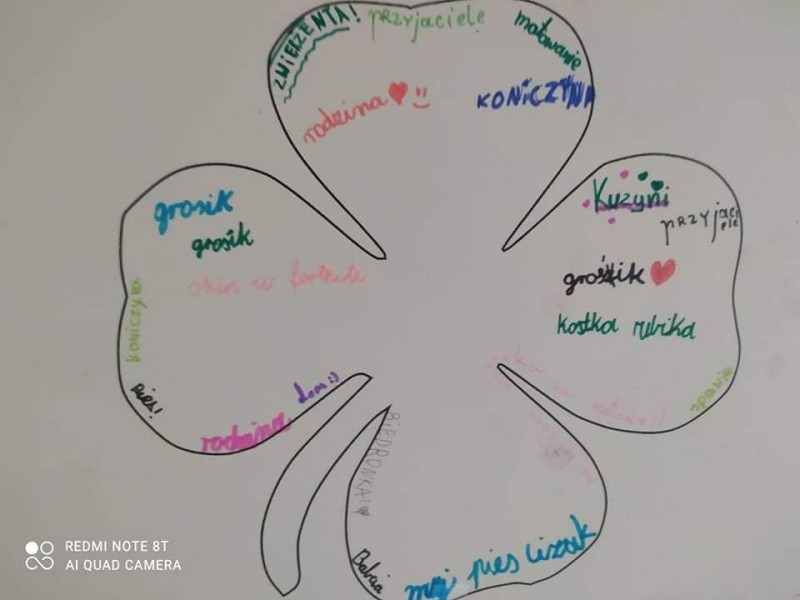 ZWIERZENTA!
przyjaciele
malowanie
rodzina
KONICZYNA
grosik
grosik
skin w fortnite
koniczyna
pies!
rodzina
dom:)
Kuzyni
przyjaciele
grosik
kostka rubika
spanie
BIEDRONKA
Babcia
mój pies Lizak
REDMI NOTE 8T
AI QUAD CAMERA